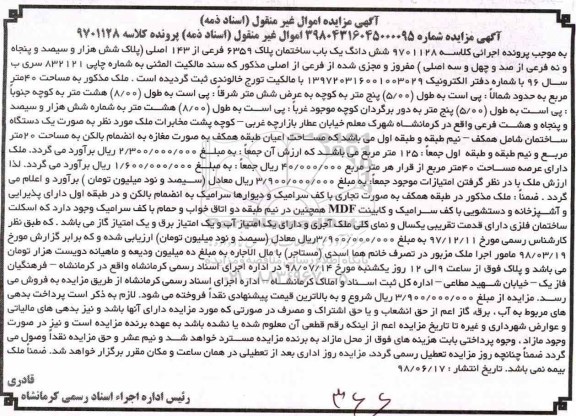 آگهی مزایده اموال غیر منقول (اسناد ذمه)
آگهی مزایده شماره ۳۹۸۰۴۳۱۶۰۴۵۰۰۰۰۹۵ اموال غیر منقول (اسناد ذمه) پرونده کلاسه ۹۷۰۱۱۲۸
به موجب پرونده اجرائی کلاسه ۹۷۰۱۱۲۸ شش دانگ یک باب ساختمان پلاک ۶۳۵۹ فرعی از ۱۴۳ اصلی (پلاک شش هزار و سیصد و پنجاه
و نه فرعی از صد و چهل و سه اصلی) مفروز و مجزی شده از فرعی از اصلی مذکور که سند مالکیت المثنی به شماره چاپی ۸۳۲۱۲۱ سری ب
سال ۹۶ با شماره دفتر الکترونیک ۱۳۹۷۲۰۳۱۶۰۰۱۰۰۳۰۲۹ با مالکیت تورج خالوندی ثبت گردیده است. ملک مذکور به مساحت ۴۰متر
مربع به حدود شمالاً: پی است به طول (۵/۰۰) پنج متر به کوچه به عرض شش متر شرقاً: پی است به طول (۸/۰۰) هشت متر به کوچه جنوباً
: پی است به طول (۵/۰۰) پنج متر به دور برگردان کوچه موجود غرباً: پی است به طول (۸/۰۰) هشت متر به شماره شش هزار و سیصد
و پنجاه و هشت فرعی واقع در کرمانشاه شهرک معلم خیابان عطار بازارچه غربی – کوچه پشت مخابرات ملک مورد نظر به صورت یک دستگاه
ساختمان شامل همکف – نیم طبقه و طبقه اول می باشد که مساحت اعیان طبقه همکف به صورت مغازه به انضمام بالکن به مساحت ۲۰متر
مربع و نیم طبقه و طبقه اول جمعاً: ۱۲۵ متر مربع می باشد که ارزش آن جمعاً: به مبلغ ۲/۳۰۰/۰۰۰/۰۰۰ ریال برآورد می گردد. ملک
دارای عرصه مساحت ۴۰متر مربع از قرار هر متر مربع ۴۰/۰۰۰/۰۰۰ ریال جمعاً: به مبلغ ۱/۶۰۰/۰۰۰/۰۰۰ ریال برآورد می گردد. لذا
ارزش ملک با در نظر گرفتن امتیازات موجود جمعاً: به مبلغ ۳/۹۰۰/۰۰۰/۰۰۰ ریال معادل (سیصد و نود میلیون تومان) برآورد و اعلام می
گردد. ضمناً: ملک مذکور در طبقه همکف به صورت تجاری با کف سرامیک و دیوارها سرامیک به انضمام بالکن و در طبقه اول دارای پذیرایی
و آشپزخانه و دستشویی با کف سرامیک و کابینت MDF همچنین در نیم طبقه دو اتاق خواب و حمام با کف سرامیک وجود دارد که اسکلت
ساختمان فلزی دارای قدمت تقریبی یکسال و نمای کلی ملک آجری و دارای یک امتیاز آب و یک امتیاز برق و یک امتیاز گاز می باشد. که طبق نظر
کارشناس رسمی مورخ ۹۷/۱۲/۱۱ به مبلغ ۳/۹۰۰/۰۰۰/۰۰۰ریال معادل (سیصد و نود میلیون تومان) ارزیابی شده و که برابر گزارش مورخ
۹۸/۰۳/۱۹ مامور اجرا ملک مزبور در تصرف خانم هما اسدی (مستاجر) با مال الاجاره به مبلغ ده میلیون ودیعه و ماهیانه دویست هزار تومان
می باشد و پلاک فوق از ساعت ۹الی ۱۲ روز یکشنبه مورخ ۹۸/۰۷/۱۴ در اداره اجرای اسناد رسمی کرمانشاه واقع در کرمانشاه – فرهنگیان
فاز یک – خیابان شهید مطاعی – اداره کل ثبت اسناد و املاک کرمانشاه – اداره اجرای اسناد رسمی کرمانشاه از طریق مزایده به فروش می
رسد. مزایده از مبلغ ۳/۹۰۰/۰۰۰/۰۰۰ ریال شروع و به بالاترین قیمت پیشنهادی نقداً فروخته می شود. لازم به ذکر است پرداخت بدهی
های مربوط به آب، برق، گاز اعم از حق انشعاب و یا حق اشتراک و مصرف در صورتی که مورد مزایده دارای آنها باشد و نیز بدهی های مالیاتی
و عوارض شهرداری و غیره تا تاریخ مزایده اعم از اینکه رقم قطعی آن معلوم شده یا نشده باشد به عهده برنده مزایده است و نیز در صورت
وجود مازاد، وجوه پرداختی بابت هزینه های فوق از محل مازاد به برنده مزایده مسترد خواهد شد و نیم عشر و حق مزایده نقداً وصول می
گردد ضمناً چنانچه روز مزایده تعطیل رسمی گردد. مزایده روز اداری بعد از تعطیلی در همان ساعت و مکان مقرر برگزار خواهد شد. ضمناً ملک
بیمه نمی باشد. تاریخ انتشار: ۹۸/۰۶/۱۷
قادری
رئیس اداره اجراء اسناد رسمی کرمانشاه